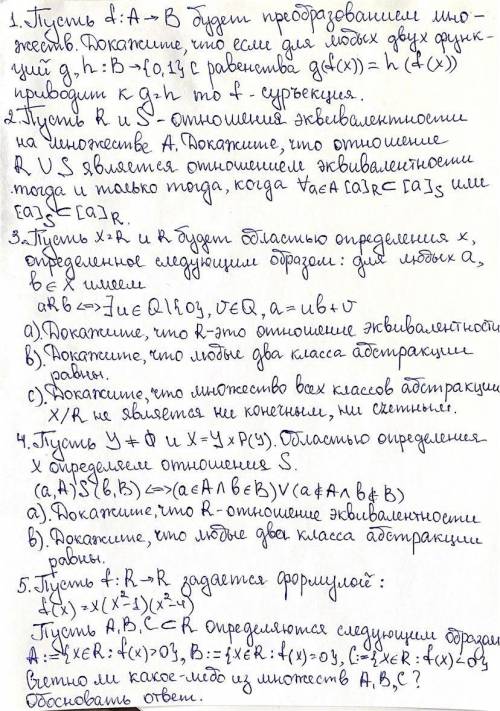 1. Пусть f: A→B будет преобразованием мно-
жеств. Докажите, что если для любых двух функ-
ций g, h : B→{0,1} с равенства g(f(x)) = h(f(x))
приводит к g=h то f - сурьекция.
2. Пусть R и S - отношения эквивалентности
на множестве A. Докажите, что отношение
R ∪ S является отношением эквивалентности
тогда и только тогда, когда ∀a∈A [a]R⊂[a]S или
[a]S⊂[a]R.
3. Пусть X=R и R будет областью определения x,
определенное следующим образом: для любых a,
b∈X имеем
aRb <=> ∃u∈Q\{0}, v∈Q, a=ub+v
a). Докажите, что R-это отношение эквивалентности
b). Докажите, что любые два класса абстракции
равны.
c). Докажите, что множество всех классов абстракции
X/R не является ни конечным, ни счетным.
4. Пусть Y ≠ Φ и X=Y×P(Y). Областью определения
X определяем отношения S.
(a,A)S(b,B) <=> (a∈A∧b∈B)∨(a∉A∧b∉B)
a). Докажите, что R-отношение эквивалентности
b). Докажите, что любые два класса абстракции
равны.
5. Пусть f: R→R задается формулой:
f(x) = x(x²-1)(x²-4)
Пусть A,B,C⊂R определяются следующим образом
A:={x∈R: f(x)>0}, B:={x∈R: f(x)=0}, C:={x∈R: f(x)<0}
Счетно ли какое-либо из множеств A,B,C?
Обосновать ответ.